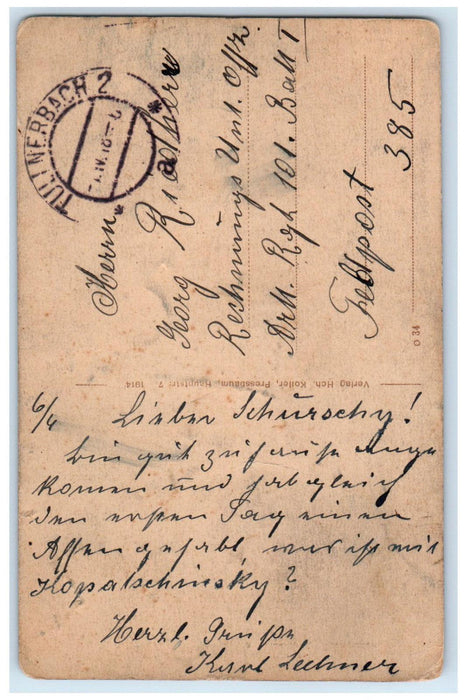 TULLNERBACH 2
a
Herrn
Georg
Rechnungs Unt. Offz.
Artt. Rgt 101. Batt I
Feldpost 385
O 34
Verlag Hch. Koller, Pressbaum, Hauptstr. 7 1914
6/4 Lieber Schurschy!
bin gut zuhause ange
komen und hab gleich
den ersten Tag einen
Affen gehabt, was ist mit
Kopatschinsky?
Herzl. Grüße
Karl Lechner